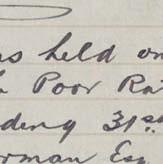 s held on
Poor Ra
ding 31st
rman Esq